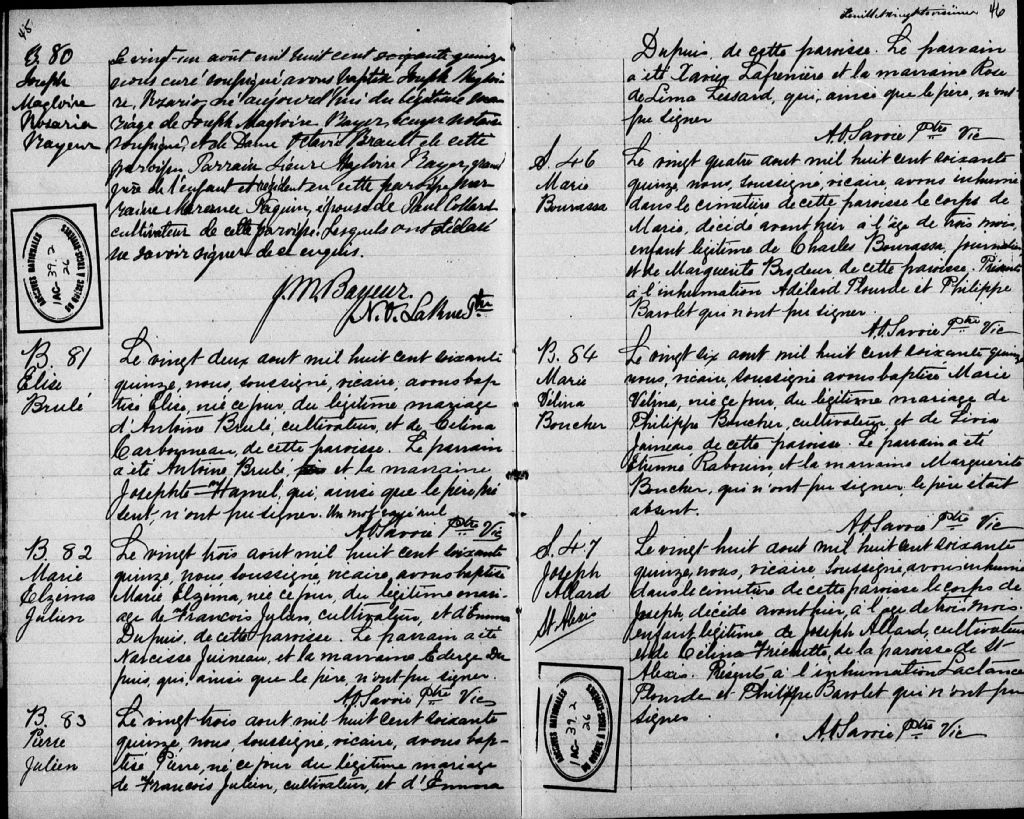 45
B. 80
Joseph
Magloire
Rosario
Bayeur
Le vingt-un août mil huit cent soixante quinze
nous curé soussigné avons baptisé Joseph Magloi-
re, Rosario, né aujourd'hui du légitime ma
riage de Joseph Magloire Bayeur, Ecuyer notaire
soussigné, et de Dame Octavie Brault de cette
paroisse. Parrain Sieur Magloire Bayeur, grand
père de l'enfant et résident en cette paroisse mar
raine Maranne Paquin, épouse de Paul Collard
cultivateur de cette paroisse. Lesquels ont déclaré
ne savoir signer de ce enquis.
J. M. Bayeur
N. O. LaRue Ptre
B. 81
Élise
Brulé
Le vingt deux aout mil huit cent soixante
quinze, nous, soussigné, vicaire, avons bap-
tisé Élise, née ce jour, du légitime mariage
d'Antoine Brulé, cultivateur, et de Célina
Carbonneau, de cette paroisse. Le parrain
a été Antoine Brulé, et la marraine
Josephte Hamel, qui, ainsi que le père, pré
sent, n'ont pu signer. Un mot rayé nul
A. O. Savoie Ptre Vic
B. 82
Marie
Elzéma
Julien
Le vingt trois aout mil huit cent soixante
quinze, nous, soussigné, vicaire, avons baptisé
Marie Elzéma, née ce jour, du légitime mari-
age de François Julien, cultivateur, et d'Emma
Dupuis, de cette paroisse. Le parrain a été
Narcisse Juineau, et la marraine Ederge Du
puis, qui, ainsi que le père, n'ont pu signer.
A. O. Savoie Ptre Vic
B. 83
Pierre
Julien
Le vingt trois aout mil huit cent soixante
quinze, nous, soussigné, vicaire, avons bap-
tisé Pierre, né ce jour du légitime mariage
de François Julien, cultivateur, et d'Emma
ARCHIVES NATIONALES
IAC-39.2
26
Feuillet vingt troisième 46
Dupuis, de cette paroisse. Le parrain
a été Xavier Lafrenière et la marraine Rose
de Lima Lessard, qui, ainsi que le père, n'ont
pu signer
A. O. Savoie Ptre Vic
S. 46
Marie
Bourassa
Le vingt quatre aout mil huit cent soixante
quinze, nous, soussigné, vicaire, avons inhumé
dans le cimetière de cette paroisse le corps de
Marie, décédé avant hier à l'âge de trois mois,
enfant légitime de Charles Bourassa, journalier
et de Marguerite Brodeur de cette paroisse. Présents
à l'inhumation Adélard Plourde et Philippe
Barolet qui n'ont pu signer.
A. O. Savoie Ptre Vic
B. 84
Marie
Vélina
Boucher
Le vingt six aout mil huit cent soixante quinze
nous, vicaire, soussigné avons baptisé Marie
Vélina, née ce jour, du légitime mariage de
Philippe Boucher, cultivateur et de Livia
Juineau de cette paroisse. Le parrain a été
Etienne Rabouin et la marraine Marguerite
Boucher, qui n'ont pu signer, le père était
absent.
A. O. Savoie Ptre Vic
S. 47
Joseph
Allard
St Alexis
Le vingt huit aout mil huit cent soixante
quinze, nous, vicaire soussigné, avons inhumé
dans le cimetière de cette paroisse le corps de
Joseph, décédé avant hier, à l'age de trois mois.
enfant légitime de Joseph Allard, cultivateur
et de Célina Frenette, de la paroisse de St
Alexis. Présents à l'inhumation Lactance
Plourde et Philippe Barolet qui n'ont pu
signer
A. O. Savoie Ptre Vic
ARCHIVES NATIONALES
IAC-39.2
26